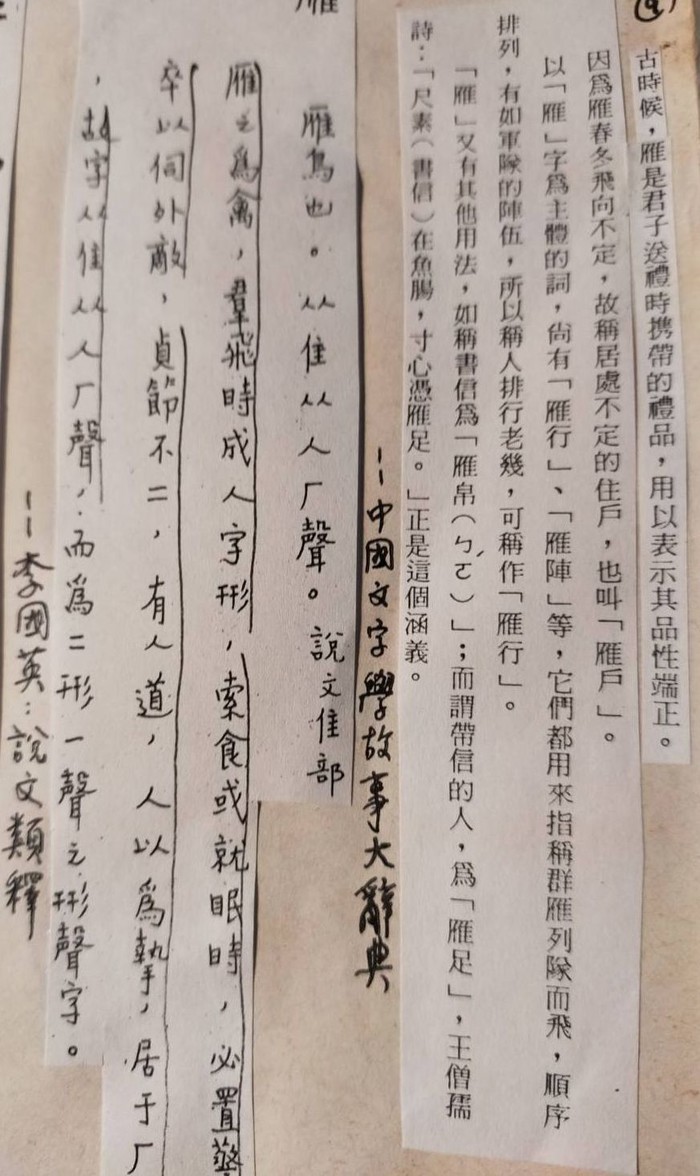 (9)
古時候，雁是君子送禮時携帶的禮品，用以表示其品性端正。
因爲雁春冬飛向不定，故稱居處不定的住戶，也叫「雁戶」。
以「雁」字爲主體的詞，尙有「雁行」、「雁陣」等，它們都用來指稱群雁列隊而飛，順序
排列，有如軍隊的陣伍，所以稱人排行老幾，可稱作「雁行」。
「雁」又有其他用法，如稱書信爲「雁帛（ㄅㄛˊ）」；而謂帶信的人，爲「雁足」，王僧孺
詩：「尺素（書信）在魚腸，寸心憑雁足。」正是這個涵義。
－－中國文字學故事大辭典
雁
雁鳥也。从隹从人厂聲。說文隹部
雁之爲禽，羣飛時成人字形，索食或就眠時，必置警
卒以伺外敵，貞節不二，有人道，人以爲摯，居于厂
，故字从隹从人厂聲，而爲二形一聲之形聲字。
－－李國英：說文類釋